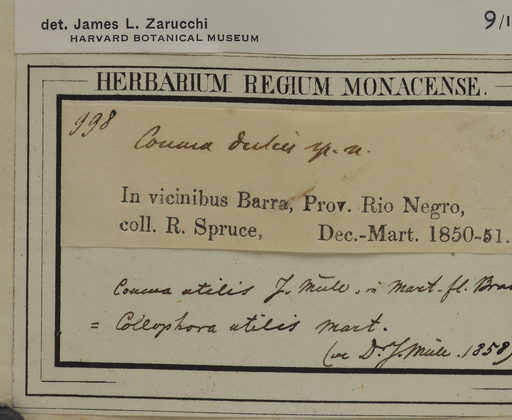 det. James L. Zarucchi 9/1
HARVARD BOTANICAL MUSEUM
HERBARIUM REGIUM MONACENSE.
998
Couma dulcis sp. n.
In vicinibus Barra, Prov. Rio Negro,
coll. R. Spruce, Dec.-Mart. 1850-51.
Couma utilis J. Müll. in Mart. fl. Bras
= Collophora utilis Mart.
Dr. J. Müll. 1858)